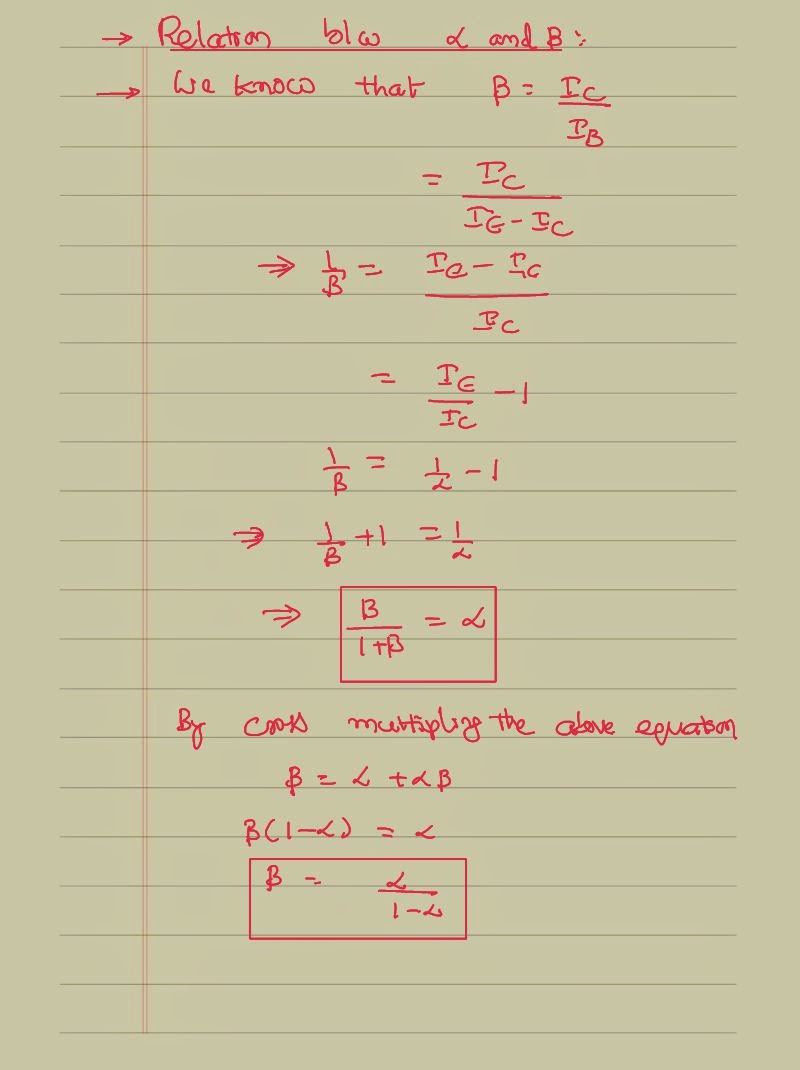 → Relation b/w α and β :
→ We know that β = I_C / I_B
= I_C / (I_E - I_C)
⇒ 1/β = (I_E - I_C) / I_C
= I_E / I_C - 1
1/β = 1/α - 1
⇒ 1/β + 1 = 1/α
⇒ β / (1+β) = α
By cross multipling the above equation
β = α + αβ
β(1-α) = α
β = α / (1-α)